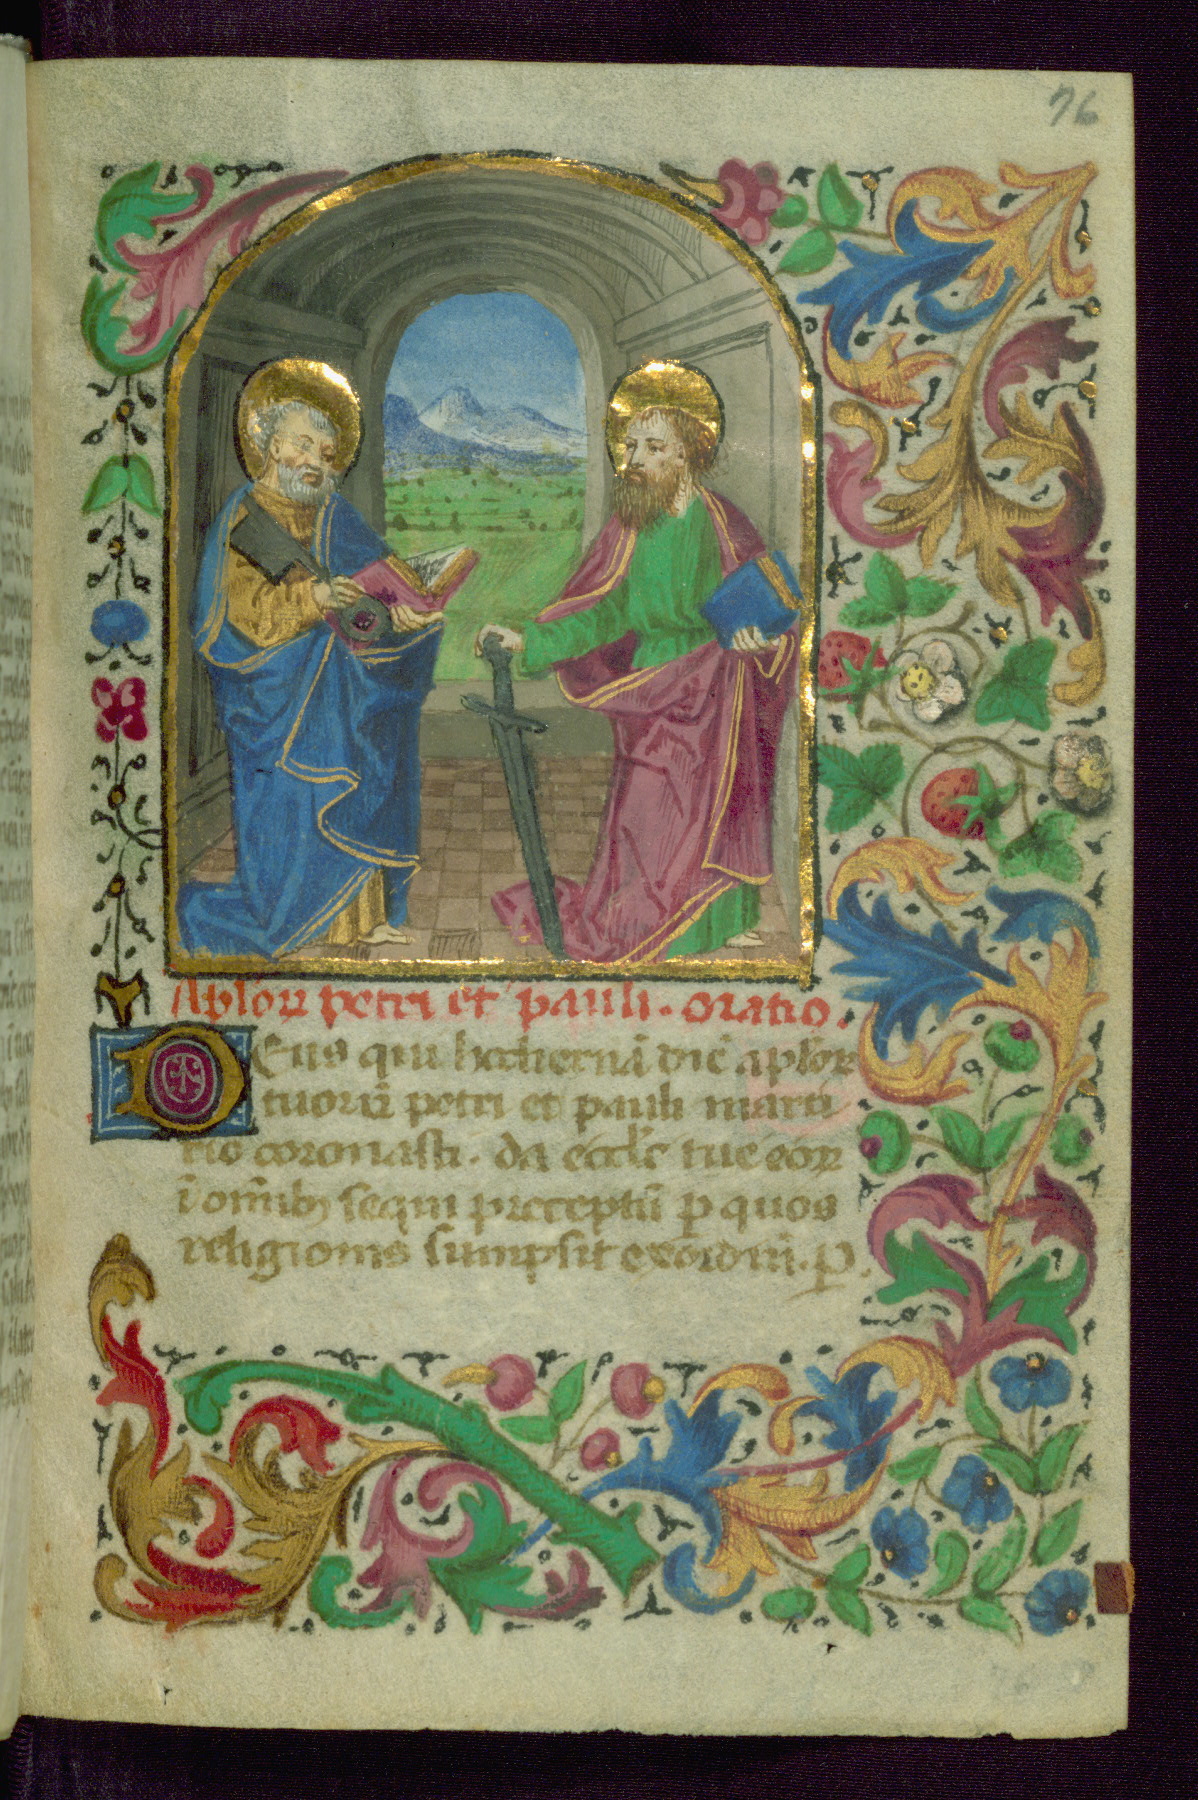 76
Aplo℞ petri et pauli. oratio.
Deus qui hodiernā diē aplo℞
tuorū petri et pauli marti
rio coronasti. da eccle tue eo℞
ī omībꝫ sequi preceptū p quos
religionis sumpsit exordiū. P.